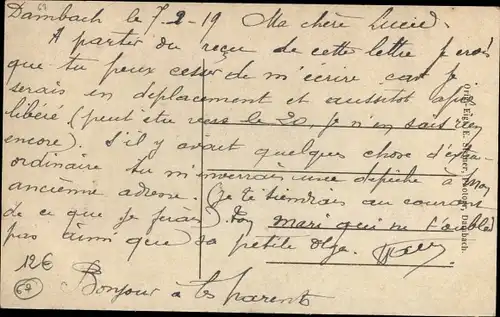 Dambach le 7-2-19 Ma chère Lucie.
A partir du reçu de cette lettre je crois
que tu peux cesser de m'écrire car je
serais en déplacement et aussitot après
libéré (peut être vers le 20, je n'en sais rien
encore). S'il y avait quelques chose d'extra-
ordinaire tu m'enverrais une dépêche à mon
ancienne adresse. (Je te tiendrais au courant
de ce que je ferais) Ton mari qui ne t'oublie
pas ainsi que sa petite Olga.
Bonjour à tes parents
12€
67
67
Photogr. Dambach.